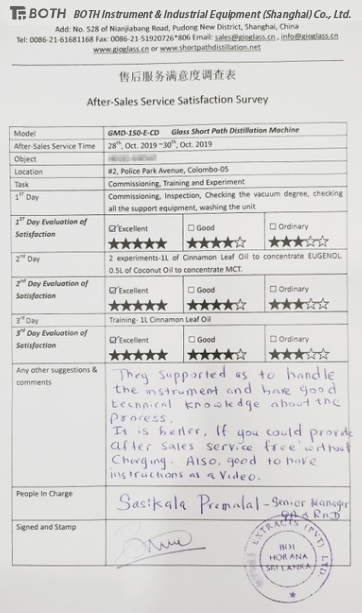 BOTH BOTH Instrument & Industrial Equipment (Shanghai) Co., Ltd.
Add: No. 528 of Nianjiabang Road, Pudong New District, Shanghai, China
Tel: 0086-21-61681168 Fax: 0086-21-51920726*806 Email: sales@gioglass.cn , info@gioglass.cn
www.gioglass.cn or www.shortpathdistillation.net
售后服务满意度调查表
After-Sales Service Satisfaction Survey
Model GMD-150-E-CD Glass Short Path Distillation Machine
After-Sales Service Time 28th, Oct. 2019 ~30th, Oct. 2019
Object
Location #2, Police Park Avenue, Colombo-05
Task Commissioning, Training and Experiment
1st Day Commissioning, Inspection, Checking the vacuum degree, checking
all the support equipment, washing the unit
1st Day Evaluation of Satisfaction ☑Excellent ☐ Good ☐ Ordinary
★★★★★ ★★★★☆ ★★★☆☆
2nd Day 2 experiments-1L of Cinnamon Leaf Oil to concentrate EUGENOL
0.5L of Coconut Oil to concentrate MCT.
2nd Day Evaluation of Satisfaction ☑Excellent ☐ Good ☐ Ordinary
★★★★★ ★★★★☆ ★★★☆☆
3rd Day Training- 1L Cinnamon Leaf Oil
3rd Day Evaluation of Satisfaction ☑Excellent ☐ Good ☐ Ordinary
★★★★★ ★★★★☆ ★★★☆☆
Any other suggestions & comments
They supported us to handle
the instrument and have good
technical knowledge about the
Process.
It is better, If you could provide
after sales service free without
Charging. Also, good to have
instructions as a Video.
People In Charge Sasikala Premalal - Senior Manager
R&D
Signed and Stamp
EXTRACTS (PVT) LTD.
BOI
HORANA
SRI LANKA